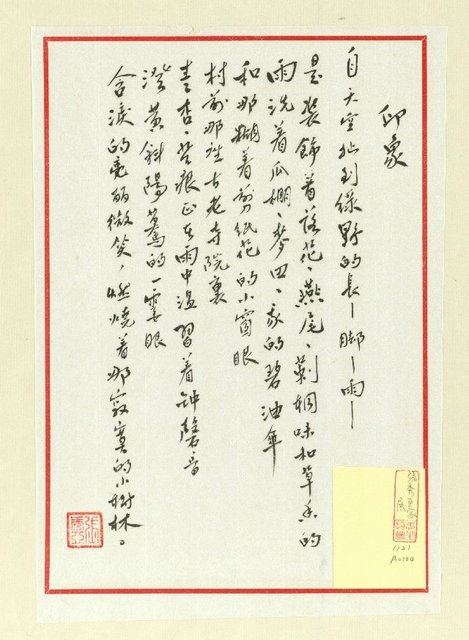 印象
自天空扯到綠野的長—脚—雨—
是裝飾着落花、燕尾、味和草香的
雨洗着瓜棚、麥田、我的碧油傘
和那糊着剪紙花的小窗眼
村前那座古老寺院裏
青杏、苔痕正在雨中温習着鐘磬音
澄黃斜陽驀的一霎眼
含淚的亮麗微笑，燃燒着那寂寞的小樹林。
1121